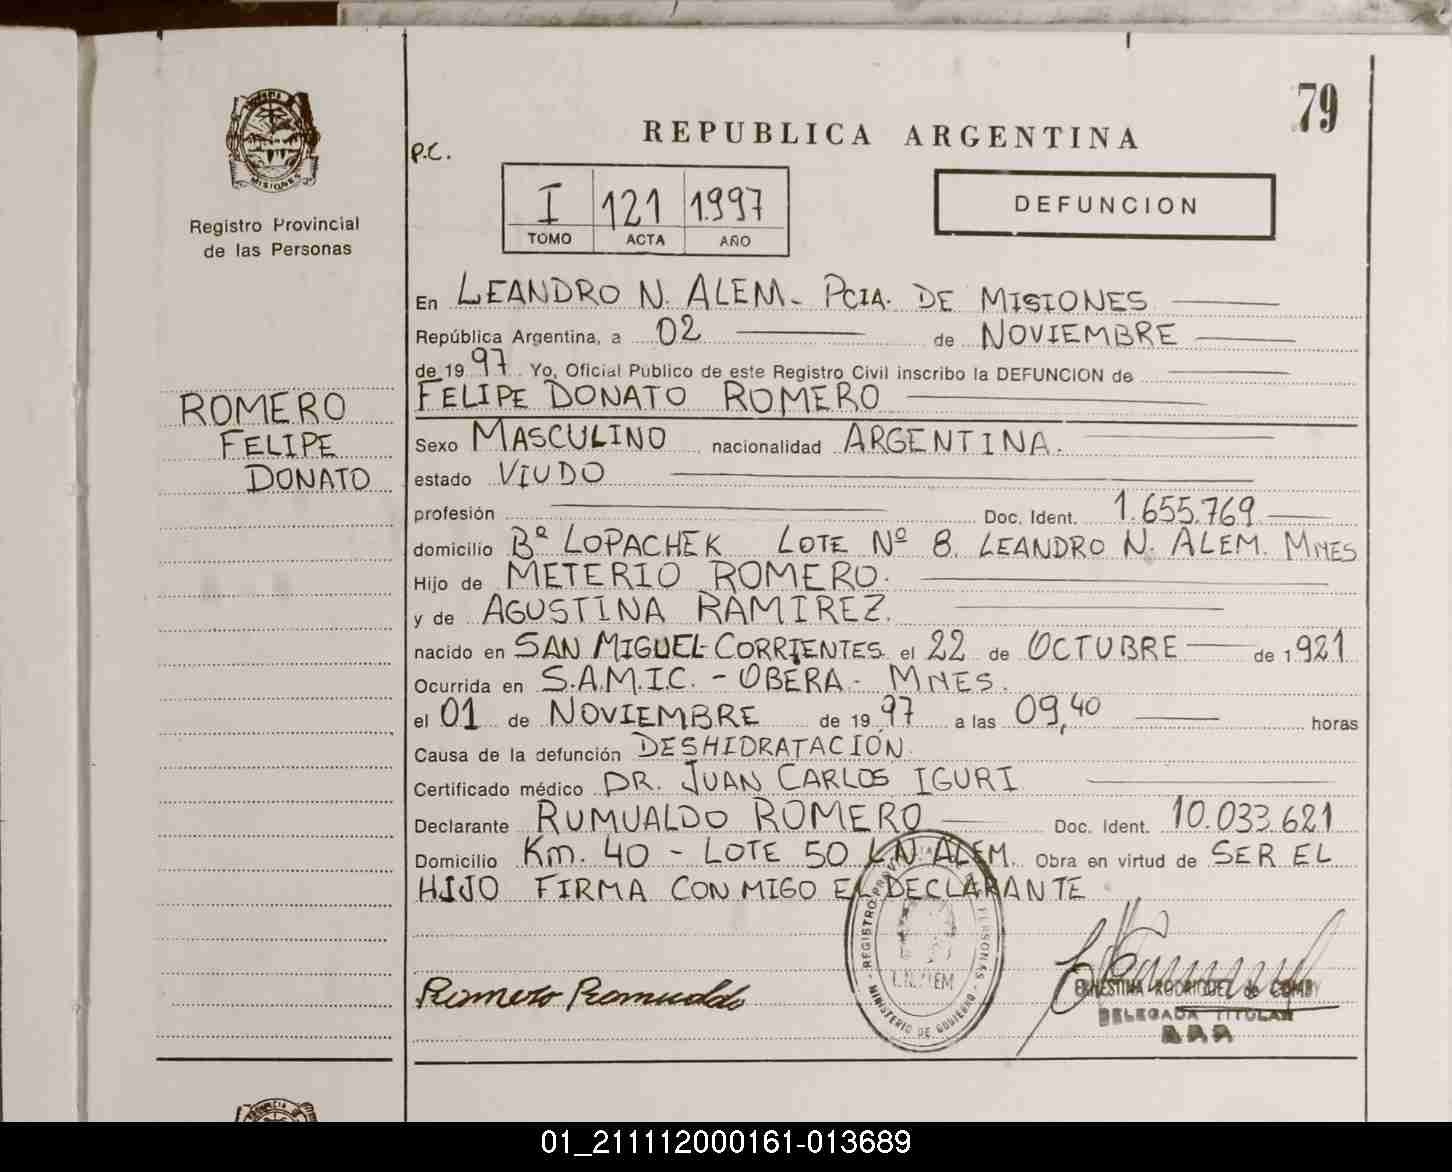 79
REPUBLICA ARGENTINA
P.C.
I 121 1997
TOMO ACTA AÑO
DEFUNCION
MISIONES
Registro Provincial
de las Personas
ROMERO
FELIPE
DONATO
En LEANDRO N. ALEM - PCIA. DE MISIONES
República Argentina, a 02 de NOVIEMBRE
de 19 97 Yo, Oficial Público de este Registro Civil inscribo la DEFUNCION de
FELIPE DONATO ROMERO
Sexo MASCULINO nacionalidad ARGENTINA.
estado VIUDO
profesión Doc. Ident. 1.655.769
domicilio Bº LOPACHEK LOTE Nº 8. LEANDRO N. ALEM. MNES
Hijo de METERIO ROMERO.
y de AGUSTINA RAMIREZ.
nacido en SAN MIGUEL-CORRIENTES el 22 de OCTUBRE de 1921
Ocurrida en S.A.M.I.C. - OBERA - MNES.
el 01 de NOVIEMBRE de 19 97 a las 09,40 horas
Causa de la defunción DESHIDRATACIÓN.
Certificado médico DR. JUAN CARLOS IGURI
Declarante RUMUALDO ROMERO Doc. Ident. 10.033.621
Domicilio Km. 40 - LOTE 50 L.N. ALEM. Obra en virtud de SER EL
HIJO FIRMA CONMIGO EL DECLARANTE
Romero Romualdo
REGISTRO PERSONAS
L.N. ALEM
MINISTERIO DE GOBIERNO
ERNESTINA RODRIGUEZ de COMBY
DELEGADA TITULAR
01_211112000161-013689